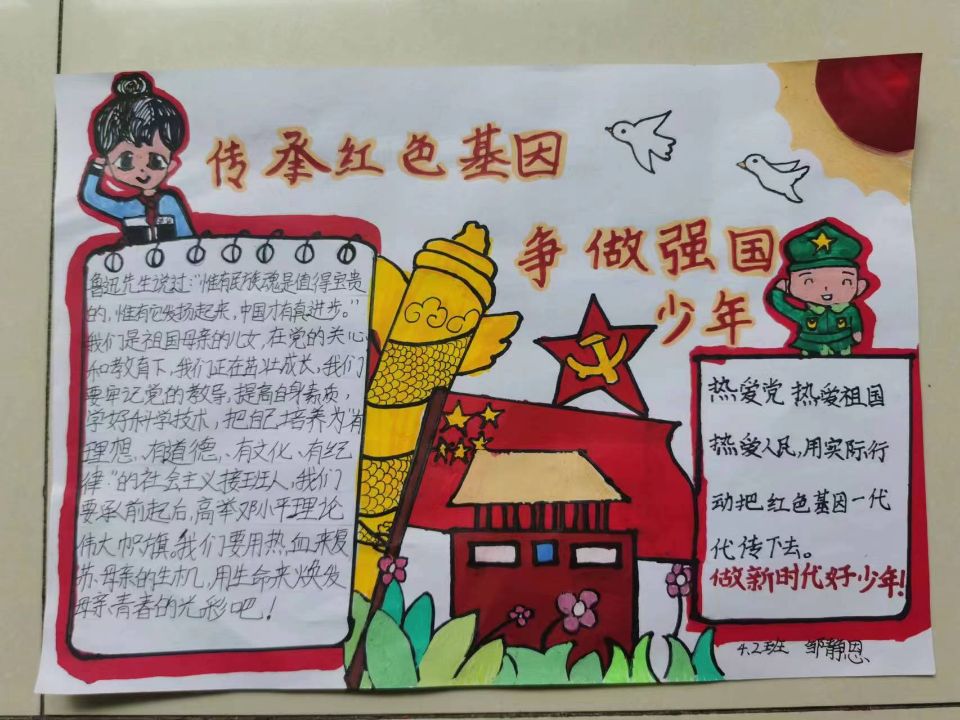 传承红色基因
争做强国
少年
鲁迅先生说过:“惟有民族魂是值得宝贵
的,惟有它发扬起来,中国才有真进步。”
我们是祖国母亲的儿女,在党的关心
和教育下,我们正在茁壮成长,我们
要牢记党的教导,提高自身素质,
学好科学技术,把自己培养为“有
理想、有道德、有文化、有纪
律”的社会主义接班人,我们
要承前起后,高举邓小平理论
伟大帜旗。我们要用热血来复
苏母亲的生机,用生命来焕发
母亲青春的光彩吧!
热爱党 热爱祖国
热爱人民,用实际行
动把红色基因一代
代传下去。
做新时代好少年!
4.2班 邹静恩